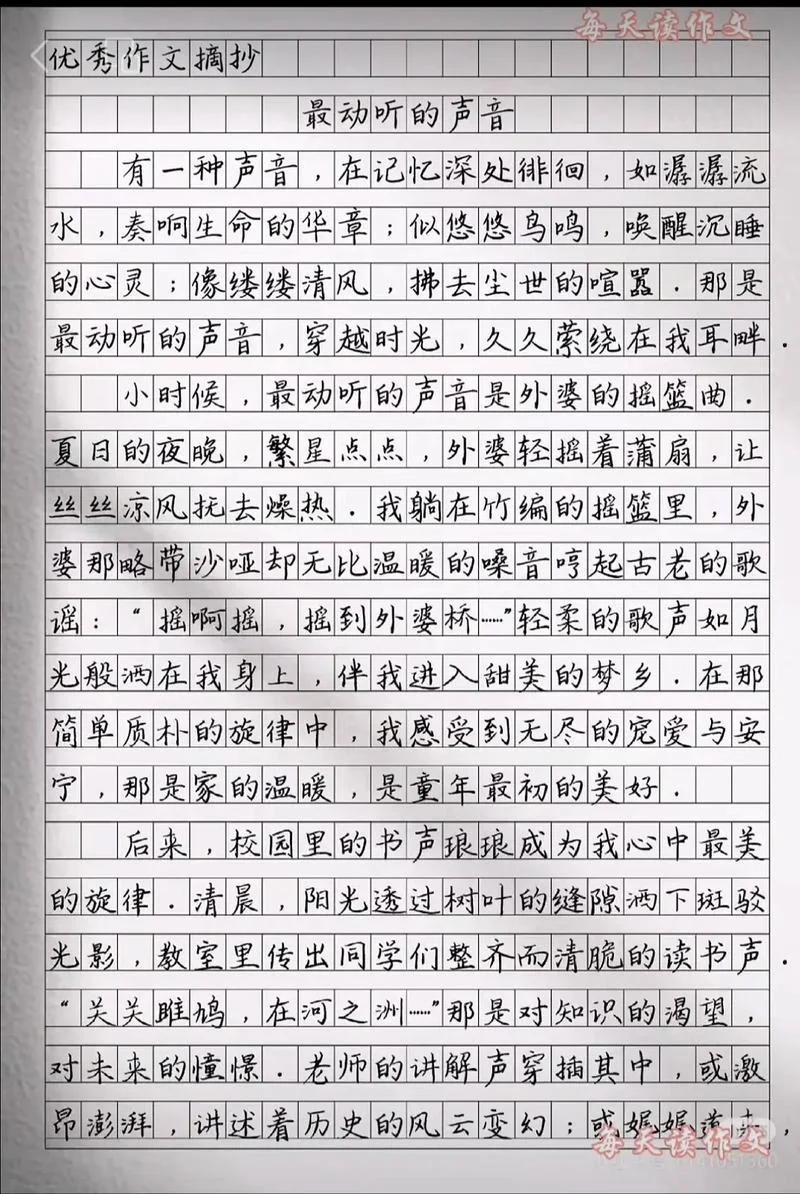 每天读作文
优秀作文摘抄
最动听的声音
有一种声音，在记忆深处徘徊，如潺潺流
水，奏响生命的华章；似悠悠鸟鸣，唤醒沉睡
的心灵；像缕缕清风，拂去尘世的喧嚣．那是
最动听的声音，穿越时光，久久萦绕在我耳畔．
小时候，最动听的声音是外婆的摇篮曲．
夏日的夜晚，繁星点点，外婆轻摇着蒲扇，让
丝丝凉风抚去燥热．我躺在竹编的摇篮里，外
婆那略带沙哑却无比温暖的嗓音哼起古老的歌
谣：“摇啊摇，摇到外婆桥……”轻柔的歌声如月
光般洒在我身上，伴我进入甜美的梦乡．在那
简单质朴的旋律中，我感受到无尽的宠爱与安
宁，那是家的温暖，是童年最初的美好．
后来，校园里的书声琅琅成为我心中最美
的旋律．清晨，阳光透过树叶的缝隙洒下斑驳
光影，教室里传出同学们整齐而清脆的读书声．
“关关雎鸠，在河之洲……”那是对知识的渴望，
对未来的憧憬．老师的讲解声穿插其中，或激
昂澎湃，讲述着历史的风云变幻；或娓娓道来，
每天读作文